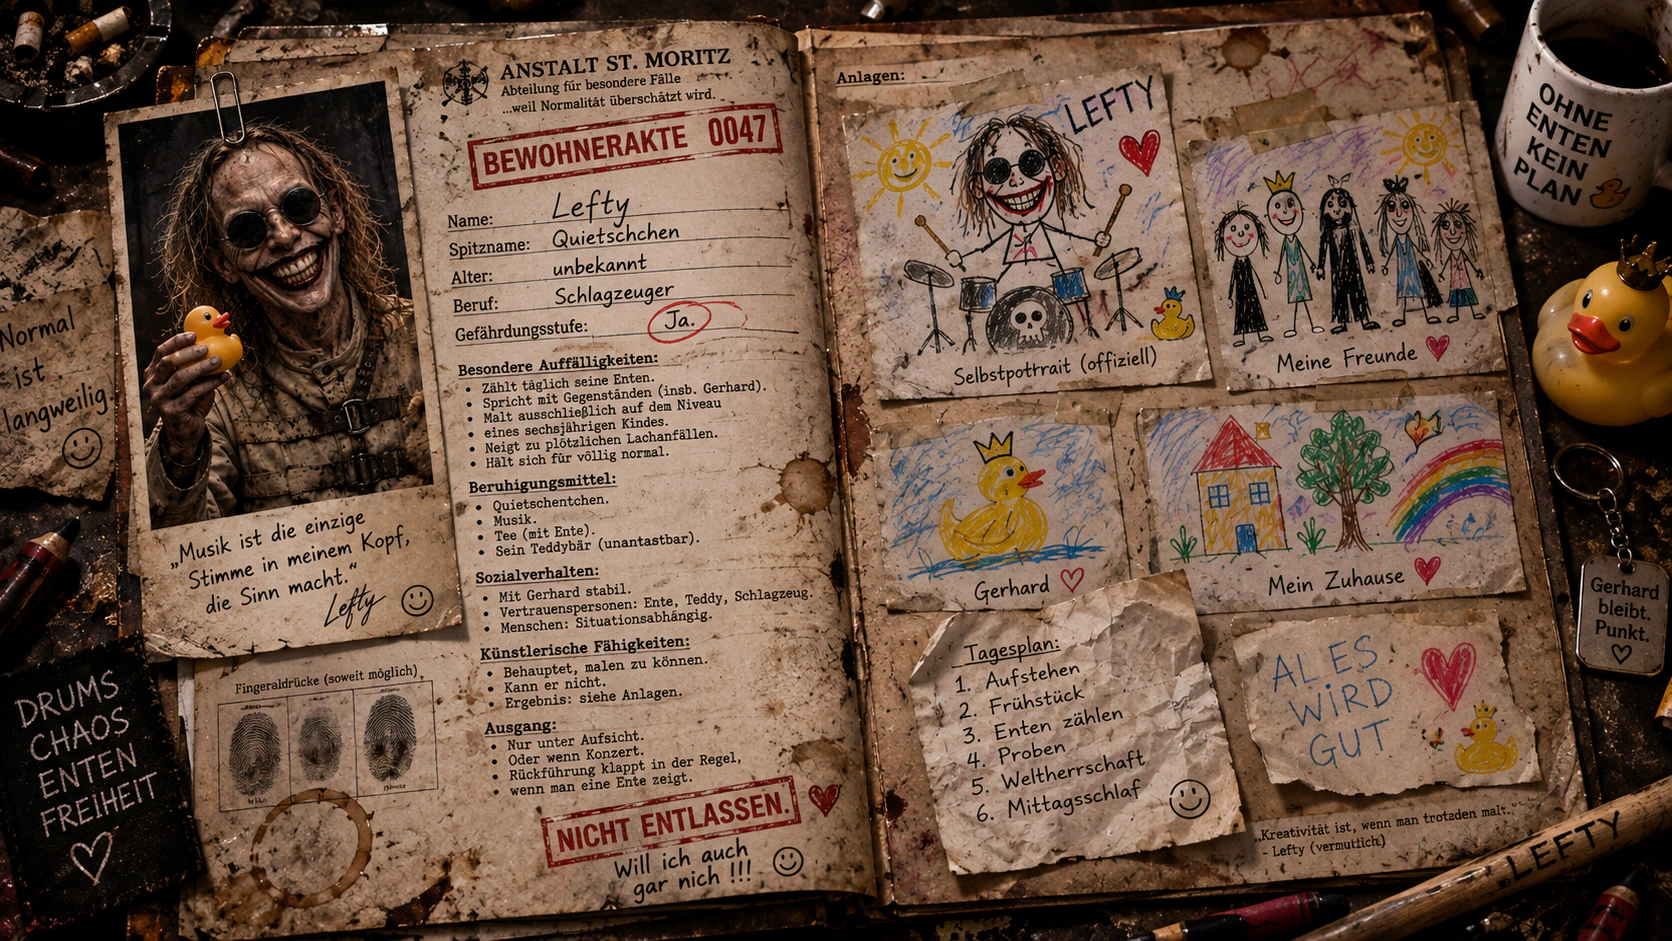 Normal
ist
langweilig.
DRUMS
CHAOS
ENTEN
FREIHEIT
„Musik ist die einzige
Stimme in meinem Kopf,
die Sinn macht.“
Lefty
Fingeraldrücke (soweit möglich)
ANSTALT ST. MORITZ
Abteilung für besondere Fälle
...weil Normalität überschätzt wird.
BEWOHNERAKTE 0047
Name: Lefty
Spitzname: Quietschchen
Alter: unbekannt
Beruf: Schlagzeuger
Gefährdungsstufe: Ja.
Besondere Auffälligkeiten:
• Zählt täglich seine Enten.
• Spricht mit Gegenständen (insb. Gerhard).
• Malt ausschließlich auf dem Niveau
• eines sechsjährigen Kindes.
• Neigt zu plötzlichen Lachanfällen.
• Hält sich für völlig normal.
Beruhigungsmittel:
• Quietschentchen.
• Musik.
• Tee (mit Ente).
• Sein Teddybär (unantastbar).
Sozialverhalten:
• Mit Gerhard stabil.
• Vertrauenspersonen: Ente, Teddy, Schlagzeug.
• Menschen: Situationsabhängig.
Künstlerische Fähigkeiten:
• Behauptet, malen zu können.
• Kann er nicht.
• Ergebnis: siehe Anlagen.
Ausgang:
• Nur unter Aufsicht.
• Oder wenn Konzert.
• Rückführung klappt in der Regel,
• wenn man eine Ente zeigt.
NICHT ENTLASSEN.
Will ich auch
gar nich !!!
Anlagen:
LEFTY
Selbstpotrrait (offiziell)
Meine Freunde
Gerhard
Mein Zuhause
Tagesplan:
1. Aufstehen
2. Frühstück
3. Enten zählen
4. Proben
5. Weltherrschaft
6. Mittagsschlaf
ALES
WiRD
GUT
„Kreativität ist, wenn man trotzden malt.“
- Lefty (vermutlich)
OHNE
ENTEN
KEIN
PLAN
Gerhard
bleibt.
Punkt.
LEFTY